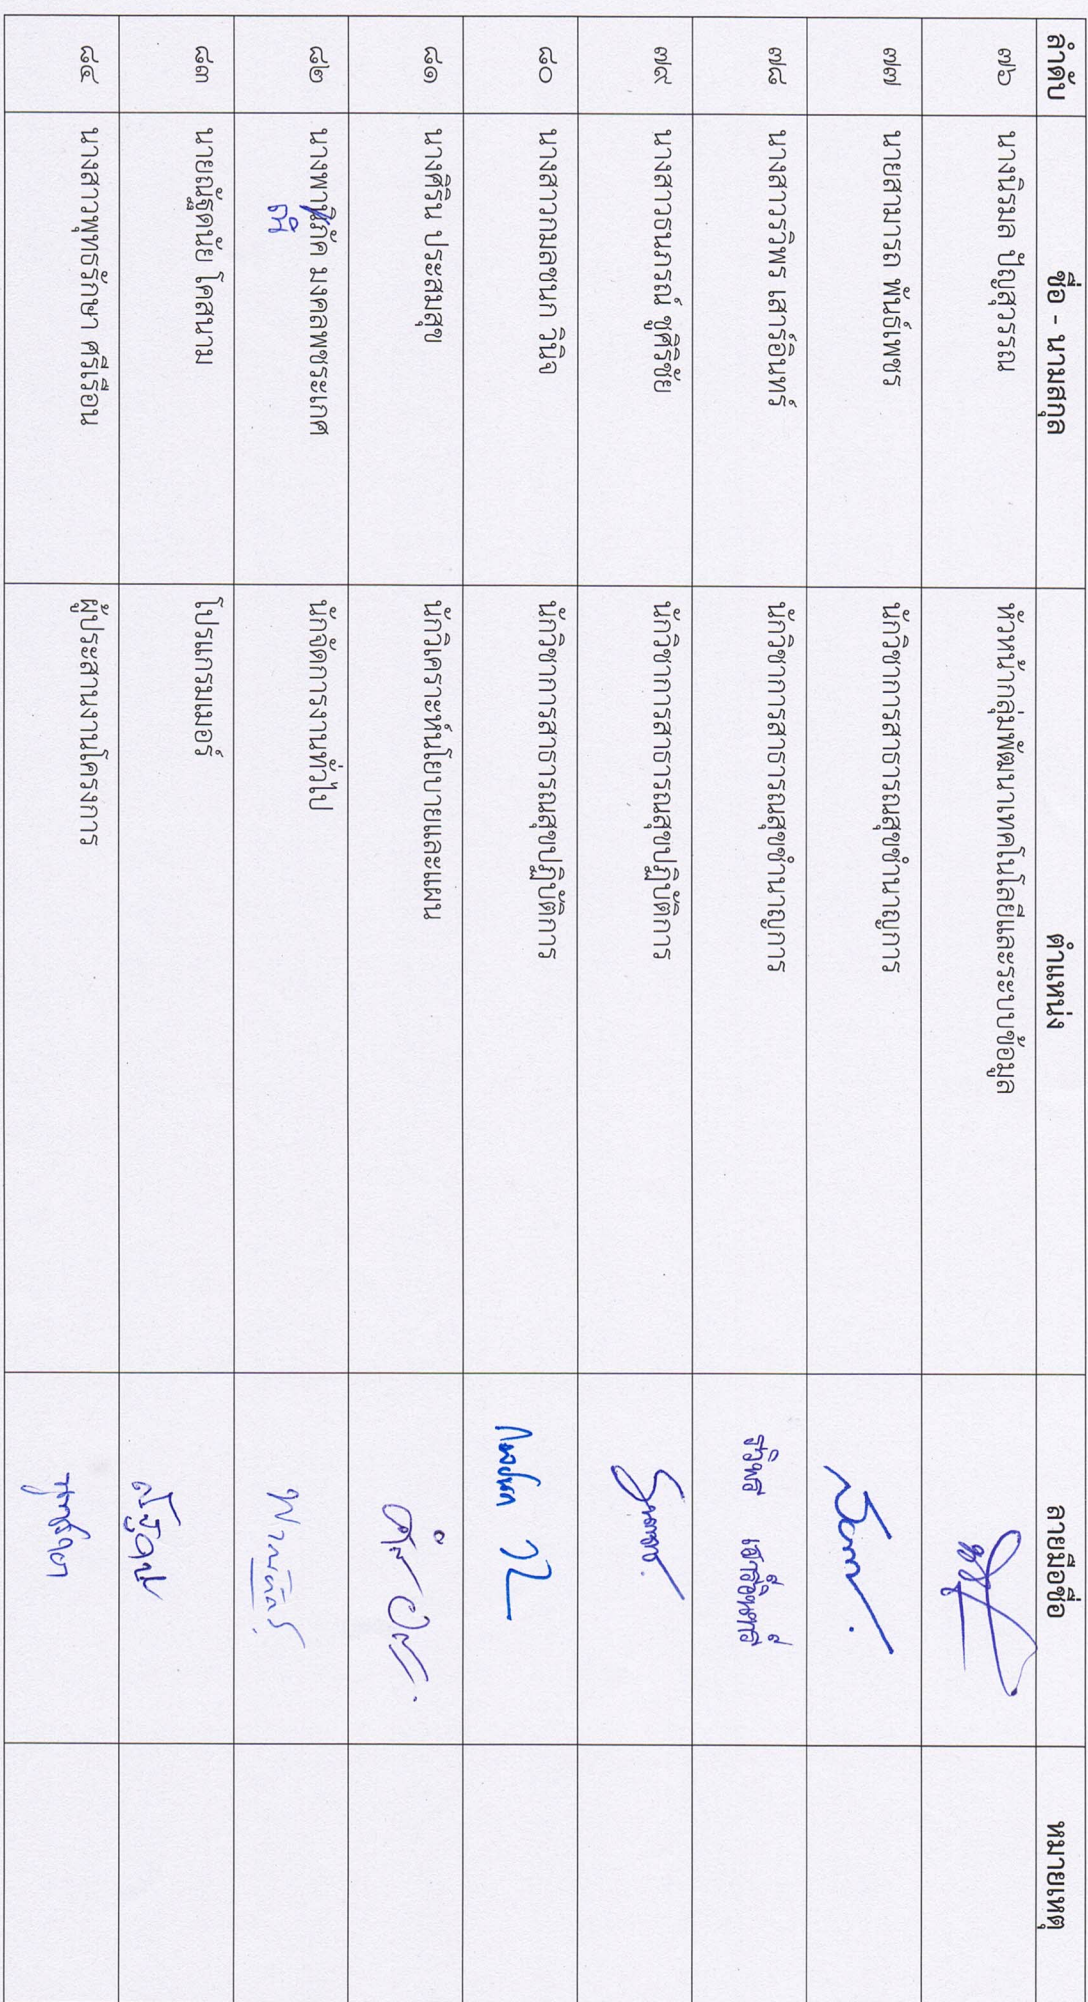 ลำดับ ชื่อ - นามสกุล ตำแหน่ง ลายมือชื่อ หมายเหตุ
๗๖ นางนิรมล ปัญสุวรรณ หัวหน้ากลุ่มพัฒนาเทคโนโลยีและระบบข้อมูล
๗๗ นายสามารถ พันธ์เพชร นักวิชาการสาธารณสุขชำนาญการ
๗๘ นางสาวรวิพร เสาร์อินทร์ นักวิชาการสาธารณสุขชำนาญการ รวิพร เสาร์อินทร์
๗๙ นางสาวธนภรณ์ ชูศิริชัย นักวิชาการสาธารณสุขปฏิบัติการ
๘๐ นางสาวกมลชนก วินิจ นักวิชาการสาธารณสุขปฏิบัติการ
๘๑ นางศิริน ประสมสุข นักวิเคราะห์นโยบายและแผน
๘๒ มงคลพชระเกศ นักจัดการงานทั่วไป
๘๓ นายณัฐดนัย โคสนาม โปรแกรมเมอร์
๘๔ นางสาวพุทธรักษา ศรีเรือน ผู้ประสานงานโครงการ